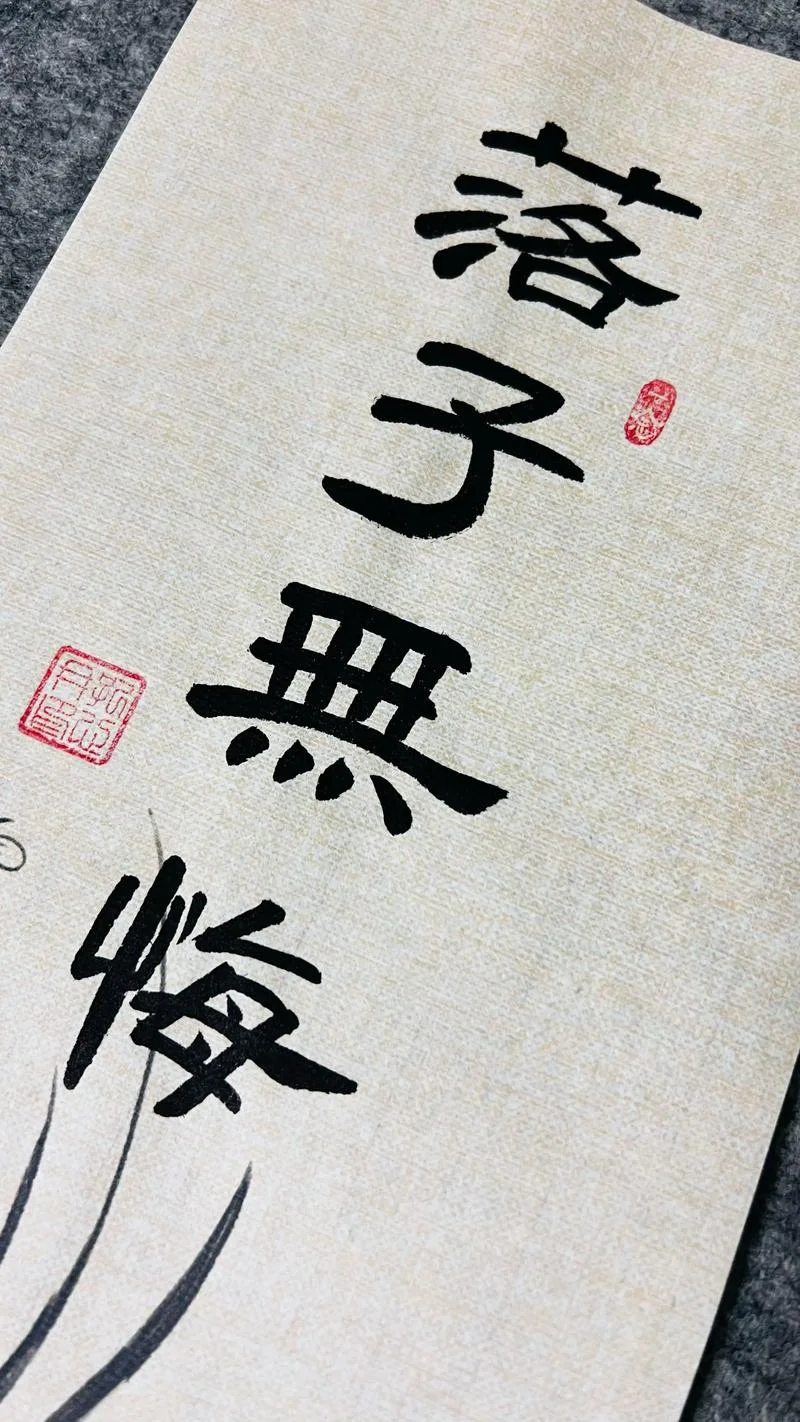 落子無悔